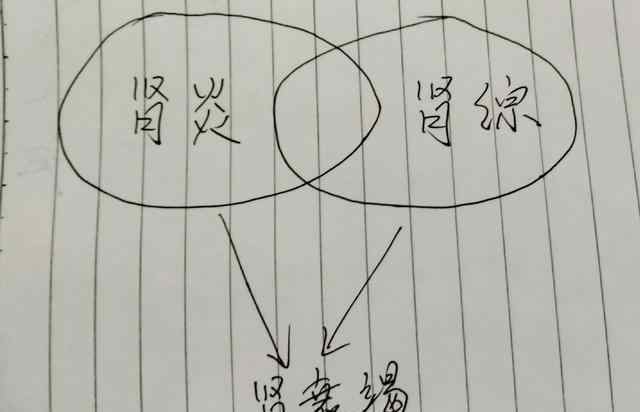 肾炎
肾综
肾衰竭